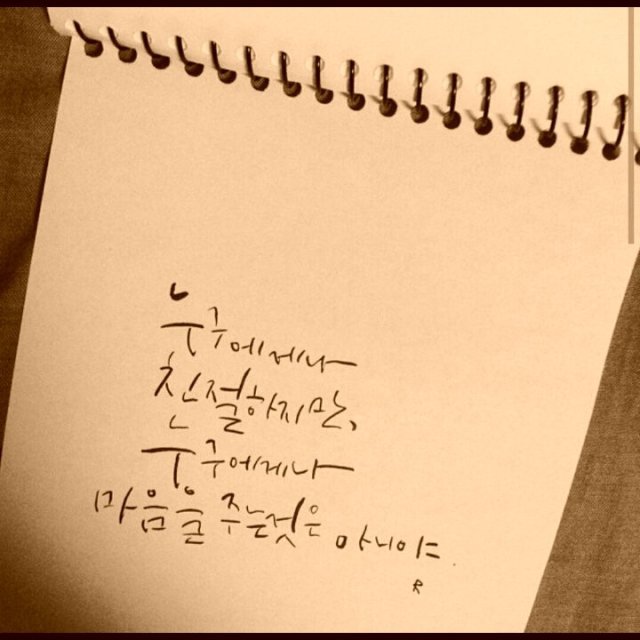 누구에게나
친절하지만,
누구에게나
마음을 주는것은 아니야.
R